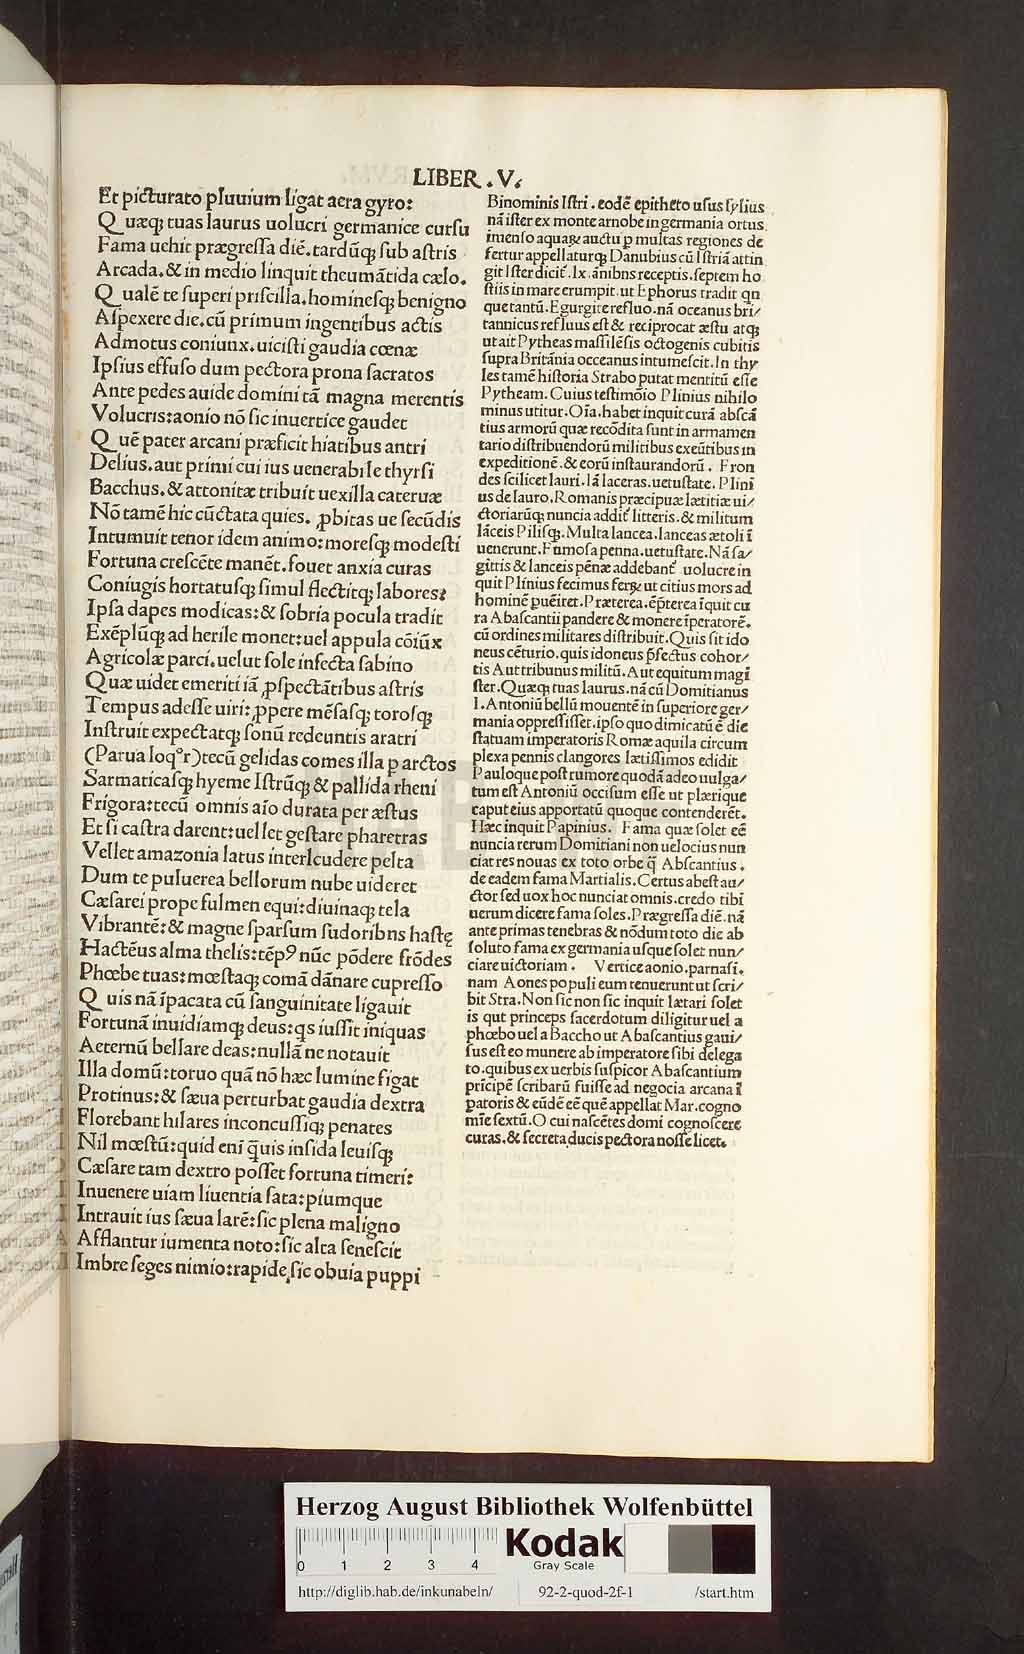 LIBER .V.
Et picturato pluuium ligat aera gyro:
Quæq; tuas laurus uolucri germanice cursu
Fama uehit prægressa diē. tardūq; sub astris
Arcada. & in medio linquit theumātida cælo.
Qualē te superi priscilla. hominesq; benigno
Aspexere die. cū primum ingentibus actis
Admotus coniunx. uicisti gaudia cœnæ
Ipsius effuso dum pectora prona sacratos
Ante pedes auide domini tā magna merentis
Volucris: aonio nō sic inuertice gaudet
Quē pater arcani præficit hiatibus antri
Delius. aut primi cui ius uenerabile thyrsi
Bacchus. & attonitæ tribuit uexilla cateruæ
Nō tamē hic cūctata quies. ꝓbitas ue secūdis
Intumuit tenor idem animo: moresq; modesti
Fortuna crescēte manēt. fouet anxia curas
Coniugis hortatusq; simul flectitq; labores:
Ipsa dapes modicas: & sobria pocula tradit
Exēplūq; ad herile monet: uel appula cōiūx
Agricolæ parci. uelut sole infecta sabino
Quæ uidet emeriti iā ꝓspectātibus astris
Tempus adesse uiri: ꝓpere mēsasq; torosq;
Instruit expectatq; sonū redeuntis aratri
(Parua loqᵒr) tecū gelidas comes illa p arctos
Sarmaticasq; hyeme Istrūq; & pallida rheni
Frigora: tecū omnis aīo durata per æstus
Et si castra darent: uellet gestare pharetras
Vellet amazonia latus interlcudere pelta
Dum te puluerea bellorum nube uideret
Cæsarei prope fulmen equi: diuinaq; tela
Vibrantē: & magne sparsum sudoribns hastę
Hactēus alma thelis: tēpꝰ nūc pōdere frōdes
Phœbe tuas: mœstaq; comā dānare cupresso
Quis nā īpacata cū sanguinitate ligauit
Fortunā inuidiamq; deus: qs iussit iniquas
Aeternū bellare deas: nullā ne notauit
Illa domū: toruo quā nō hæc lumine figat
Protinus: & sæua perturbat gaudia dextra
Florebant hilares inconcussiq; penates
Nil mœstū: quid enī q̄uis infida leuisq;
Cæsare tam dextro posset fortuna timeri:
Inuenere uiam liuentia fata: piumque
Intrauit ius sæua larē: sic plena maligno
Afflantur iumenta noto: sic alta senescit
Imbre seges nimio: rapidę sic obuia puppi
Binominis Istri. eodē epitheto usus sylius
nā ister ex monte arnobe in germania ortus
imenso aquaꝝ auctu p multas regiones de
fertur appellaturq; Danubius cū Istriā attin
git Ister dicit̄. lx. ānibns receptis. septem ho
stiis in mare erumpit. ut Ephorus tradit qn
que tantū. E gurgite refluo. nā oceanus bri/
tannicus refluus est & reciprocat æstu atq;
ut ait Pytheas massilēsis octogenis cubitis
supra Britānia occeanus intumescit. In thy
les tamē historia Strabo putat mentitū esse
Pytheam. Cuius testimōio Plinius nihilo
minus utitur. Oīa. habet inquit curā abscā
tius armorū quæ recōdita sunt in armamen
tario distribuendorū militibus exeūtibus in
expeditionē. & eorū instaurandorū. Fron
des scilicet lauri. Iā laceras. uetustate. Plini
us de lauro. Romanis præcipuæ lætitiæ ui/
ctoriarūq; nuncia addit̄ litteris. & militum
lāceis Pilisq;. Multa lancea. lanceas ætoli ī
uenerunt. Fumosa penna. uetustate. Nā sa/
gittis & lanceis pēnæ addebant̄ uolucre in
quit Plinius fecimus ferꝝ ut citius mors ad
hominē ꝑuēiret. Præterea. ēp̄terea īquit cu
ra Abascantii pandere & monere īperatorē.
cū ordines militares distribuit. Quis sit ido
neus cēturio. quis idoneus p̄fectus cohor/
tis Aut tribunus militū. Aut equitum magī
ster. Quæq; tuas laurus. nā cū Domitianus
l. Antoniū bellū mouentē in superiore ger/
mania oppressisset. ipso quo dimicatū ē die
statuam imperatoris Romæ aquila circum
plexa pennis clangores lætissimos edidit
Pauloque post rumore quodā adeo uulga/
tum est Antoniū occisum esse ut plærique
caput eius apportatū quoque contenderēt.
Hæc inquit Papinius. Fama quæ solet eē
nuncia rerum Domitiani non uelocius nun
ciat res nouas ex toto orbe q̄ Abscantius.
de eadem fama Martialis. Certus abest au/
ctor sed uox hoc nunciat omnis. credo tibi
uerum dicere fama soles. Prægressa diē. nā
ante primas tenebras & nōdum toto die ab
soluto fama ex germania usque solet nun/
ciare uictoriam. Vertice aonio. parnasi.
nam Aones populi eum tenuerunt ut scri/
bit Stra. Non sic non sic inquit lætari solet
is qut princeps sacerdotum diligitur uel a
phœbo uel a Baccho ut Abascantius gaui/
sus est eo munere ab imperatore sibi delega
to. quibus ex uerbis suspicor Abascantium
prīcipē scribarū fuisse ad negocia arcana ī
ꝑatoris & eūdē eē quē appellat Mar. cogno
mīe sextū. O cui nascētes domi cognoscere
curas. & secreta ducis pectora nosse licet.
Herzog August Bibliothek Wolfenbüttel
0 1 2 3 4
Kodak
Gray Scale
http://diglib.hab.de/inkunabeln/ 92-2-quod-2f-1 /start.htm